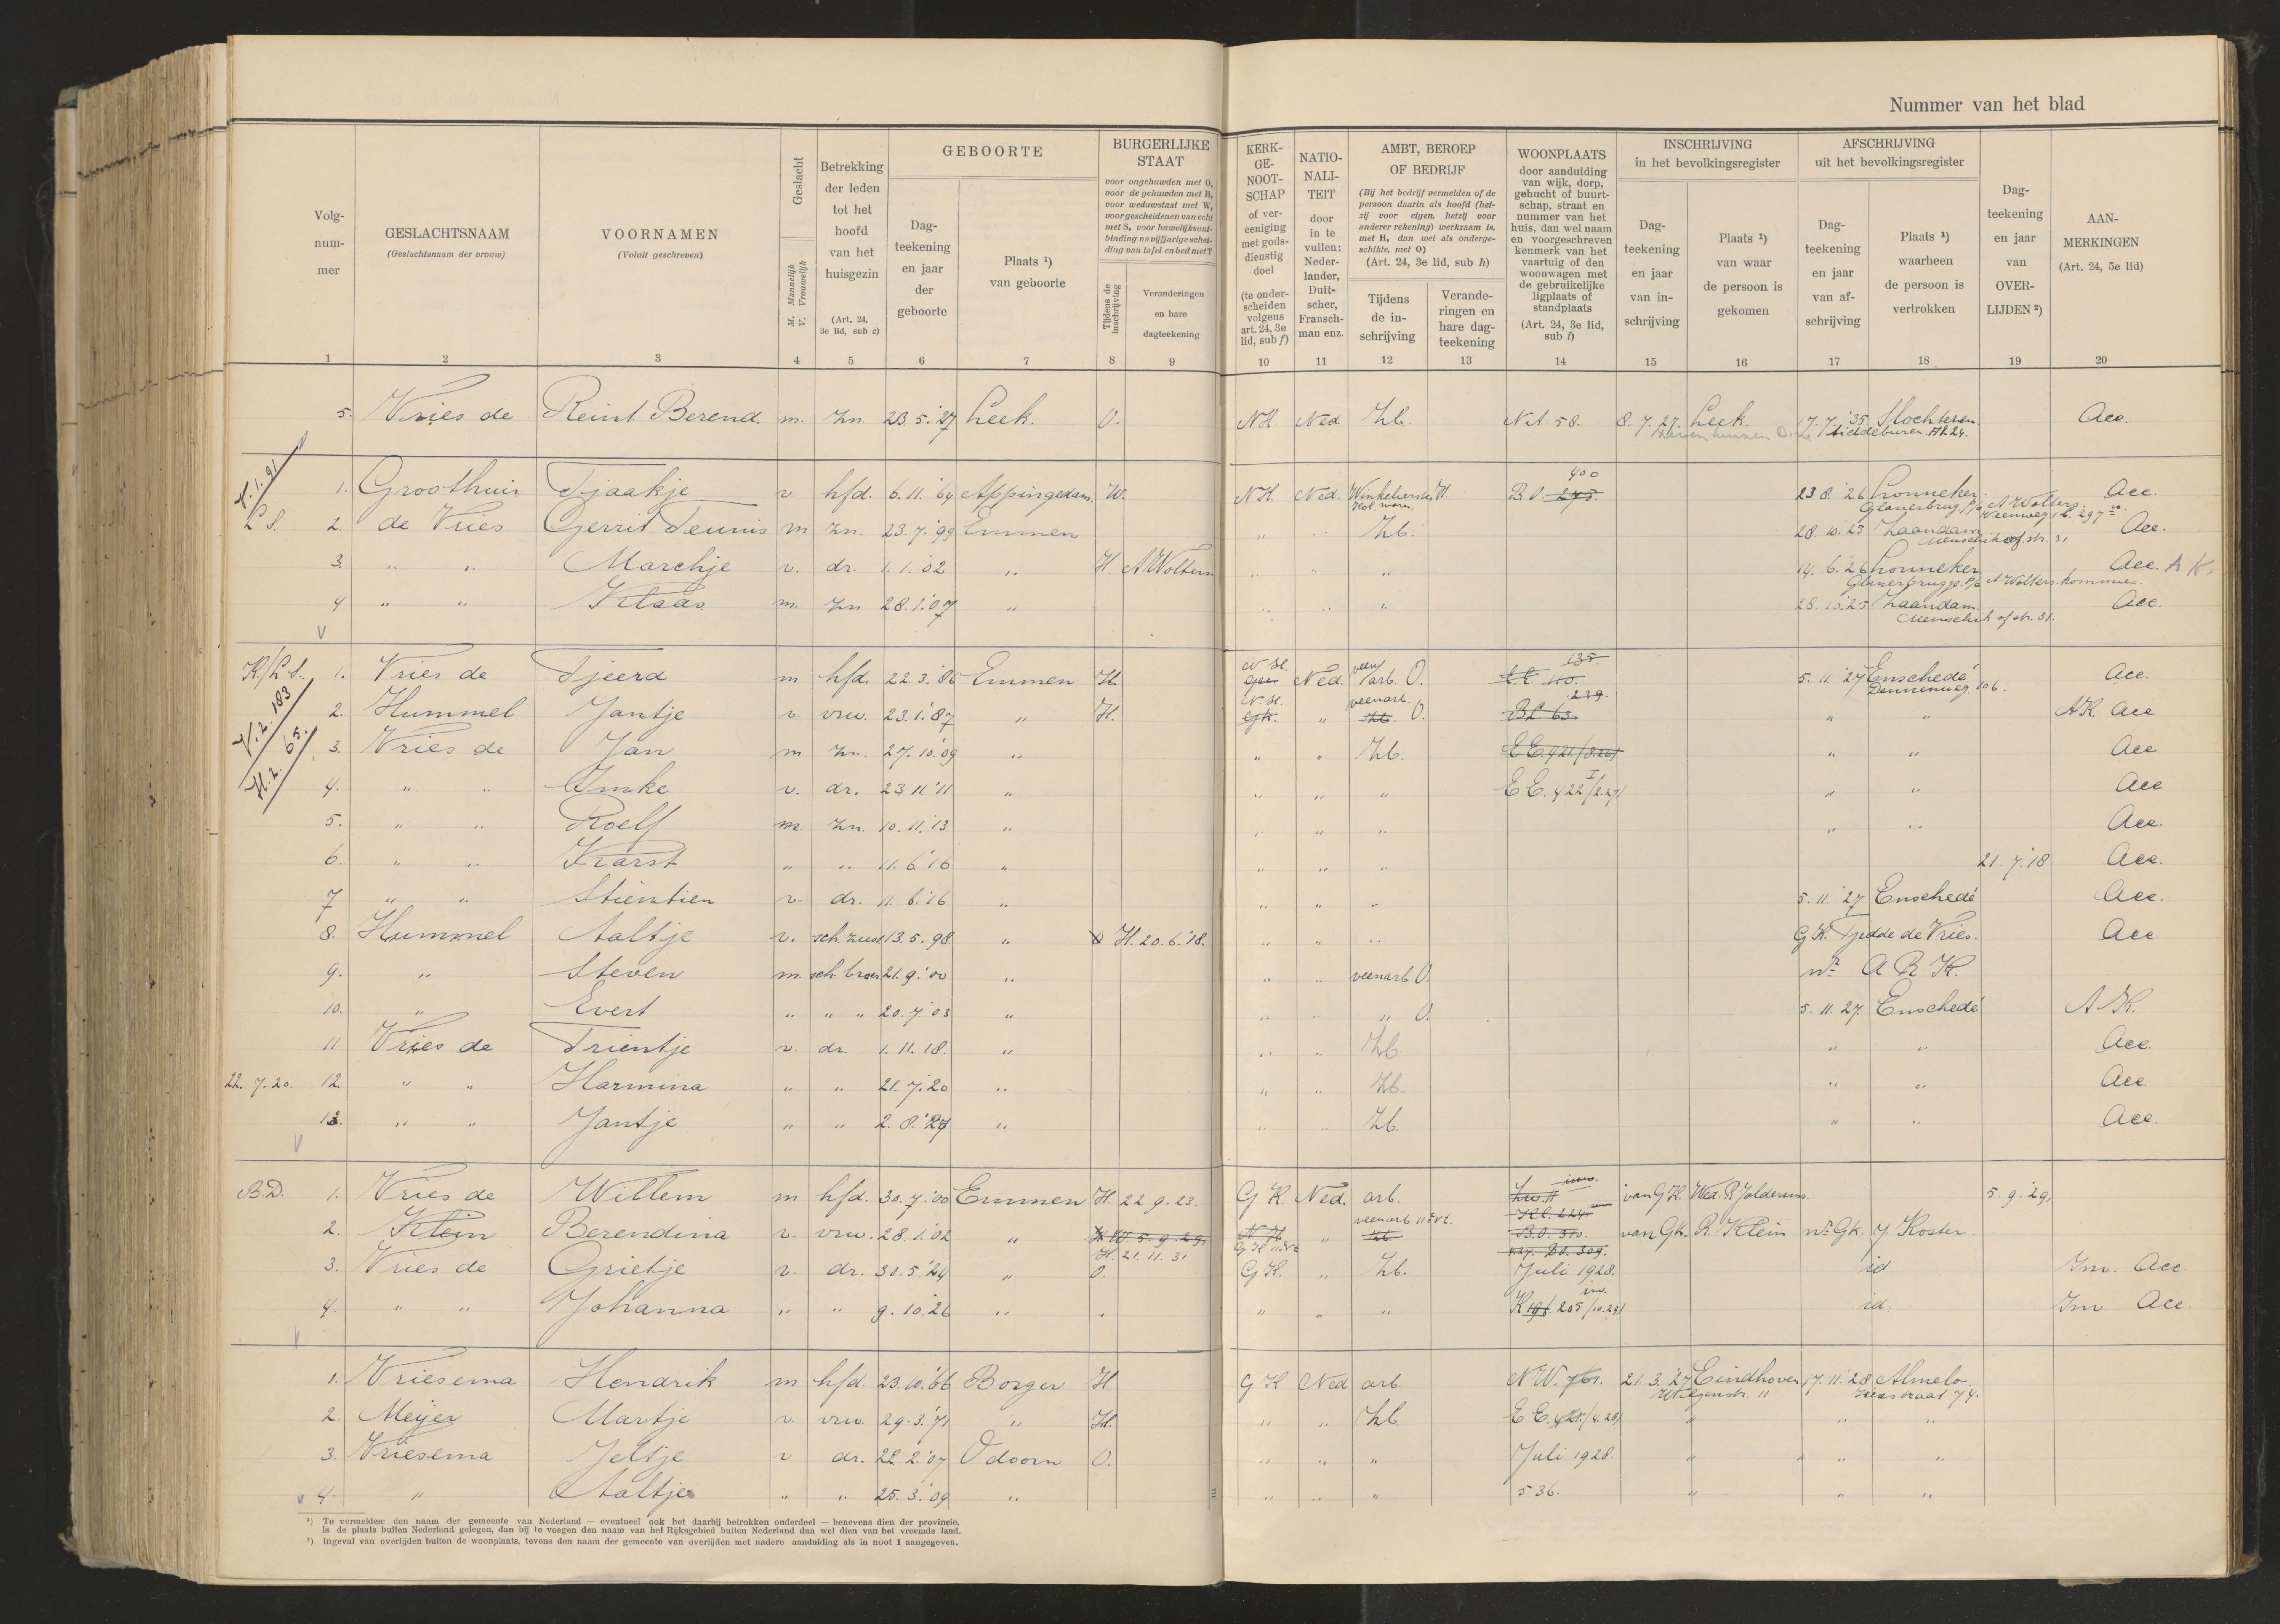 Nummer van het blad
Volg-
num-
mer
GESLACHTSNAAM
(Geslachtsnaam der vrouw)
VOORNAMEN
(Voluit geschreven)
Geslacht
M. Mannelijk
V. Vrouwelijk
Betrekking
der leden
tot het
hoofd
van het
huisgezin
(Art. 24,
3e lid, sub c)
GEBOORTE
Dag-
teekening
en jaar
der
geboorte
Plaats ¹)
van geboorte
BURGERLIJKE
STAAT
voor ongehuwden met O,
voor de gehuwden met H,
voor weduwstaat met W,
voor gescheidenen van echt
met S, voor huwelijksont-
binding na vijfjarige schei-
ding van tafel en bed met T
Tijdens de
inschrijving
Veranderingen
en hare
dagteekening
KERK-
GE-
NOOT-
SCHAP
of ver-
eeniging
met gods-
dienstig
doel
(te onder-
scheiden
volgens
art. 24, 3e
lid, sub f)
NATIO-
NALI-
TEIT
door
in te
vullen:
Neder-
lander,
Duit-
scher,
Fransch-
man enz.
AMBT, BEROEP
OF BEDRIJF
(Bij het bedrijf vermelden of de
persoon daarin als hoofd (het-
zij voor eigen, hetzij voor
anderer rekening) werkzaam is,
met H, dan wel als onderge-
schikte, met O)
(Art. 24, 3e lid, sub h)
Tijdens
de in-
schrijving
Verande-
ringen en
hare dag-
teekening
WOONPLAATS
door aanduiding
van wijk, dorp,
gehucht of buurt-
schap, straat en
nummer van het
huis, dan wel naam
en voorgeschreven
kenmerk van het
vaartuig of den
woonwagen met
de gebruikelijke
ligplaats of
standplaats
(Art. 24, 3e lid,
sub i)
INSCHRIJVING
in het bevolkingsregister
Dag-
teekening
en jaar
van in-
schrijving
Plaats ¹)
van waar
de persoon is
gekomen
AFSCHRIJVING
uit het bevolkingsregister
Dag-
teekening
en jaar
van af-
schrijving
Plaats ¹)
waarheen
de persoon is
vertrokken
Dag-
teekening
en jaar
van
OVER-
LIJDEN ²)
AAN-
MERKINGEN
(Art. 24, 5e lid)
1 2 3 4 5 6 7 8 9 10 11 12 13 14 15 16 17 18 19 20
5. Vries de Reint Berend. m. zn. 23.5.'27 Leek. O. NH Ned Zb. 58. 8.7.27. Leek. 17.7.'35 Slochteren Acc.
Siddeburen. Ah 24.
1. Groothuis Tjaakje v. hfd. 6.11.'64 Appingedam. W. N.H. Ned. H. BO. 245. 400 23 8.'26 Lonneker Acc.
Glanerbrug p/a A Wolters
2. de Vries Gerrit Teunis m zn. 23.7.'99 Emmen " " Zb. 28.10.'25 Zaandam Acc.
3. " " Marchje v. dr. 1.1.'02 " H. A Wolters " " " 14.6.'26 Lonneker Acc. A K.
4 " " Klaas m. zn 28.1.'07 " " " " 28.10.'25 Zaandam. Acc.
K./L.S. 1. Vries de Tjeerd m hfd. 22.3.'86 Emmen H. N.H. Ned. veen arb. O. 135. 5.11.'27 Enschedé Acc.
Dennenweg. 106.
V.2.183
2. Hummel Jantje v. vrw. 23.1.'87 " H. N.H. " veenarb. O. 239. BL 63 " " AK. Acc
H.2.65.
3. Vries de Jan m zn. 27.10.'09 " " " Zb. " " Acc
4. " " Imke v. dr. 23 11.'11 " " " " EE. 422 I/2.27/ " " Acc
5. " " Roelf m. zn. 10.11.'13 " " " " " " Acc.
6. " " Karst " " 11.6.'16 " " " " 21.7.'18 Acc.
7 " " Stientien v. dr. 11.6.'16 " " " " 5.11.'27 Enschedé Acc.
8. Hummel Aaltje v. sch.zust. 13.5.98 " O H. 20.6.'18. " " " GK. Tjedde de Vries. Acc
9. " Steven m. sch.broer 21.9.'00 " " " veenarb O. nr. A R K.
10. " Evert " " " 20.7.'03 " " " " O. 5.11.27. Enschedé A K.
11 Vries de Trientje v. dr. 1.11.18. " " " Zb " " Acc.
22.7.20. 12. " " Harmina " " 21.7.'20 " " " Zb. " " Acc
13. " " Jantje " " 2.8.'27 " " " Zb. " " Acc.
B.D. 1. Vries de Willem m hfd. 30.7.'00 Emmen H 22.9.23. G K. Ned. arb. inw. van GK. Wed. R Jolderma 5.9.'29.
2. Klein Berendina v. vrw. 28.1.'02 " W 5.9.29. NH " veenarb. B.O. 310. van Gk. R. Klein nr. Gk. J Koster
H. 21.11.31
3. Vries de Grietje v. dr. 30.5.'24 " O. G K. " Zb. Juli 1928. id Inv. Acc.
4. " " Johanna " " 9.10.'26 " " " " " K 198. 205/10.29/ inw. id. Inv Acc.
1. Vriesema Hendrik m hfd. 23.10.'66 Borger H. G K Ned arb. N.W. 21.3.'27 Eindhoven 17.11.28 Almelo.
2. Meijer Martje v. vrw. 29.3.'71 " H. " " Zb EE. 421./4.28/ " " "
3. Vriesema Jeltje v dr. 22.2.'07 Odoorn O. " " " Juli 1928. " " "
4. " Aaltje " " 25.3.'09 " " " " 536. " " "
¹) Te vermelden: den naam der gemeente van Nederland — eventueel ook het daarbij betrokken onderdeel — benevens dien der provincie.
Is de plaats buiten Nederland gelegen, dan bij te voegen den naam van het Rijksgebied buiten Nederland dan wel dien van het vreemde land.
²) Ingeval van overlijden buiten de woonplaats, tevens den naam der gemeente van overlijden met nadere aanduiding als in noot 1 aangegeven.